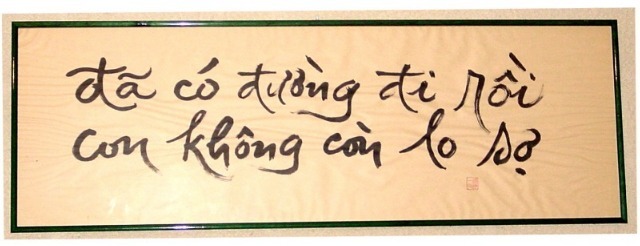 đã có đường đi rồi
con không còn lo sợ